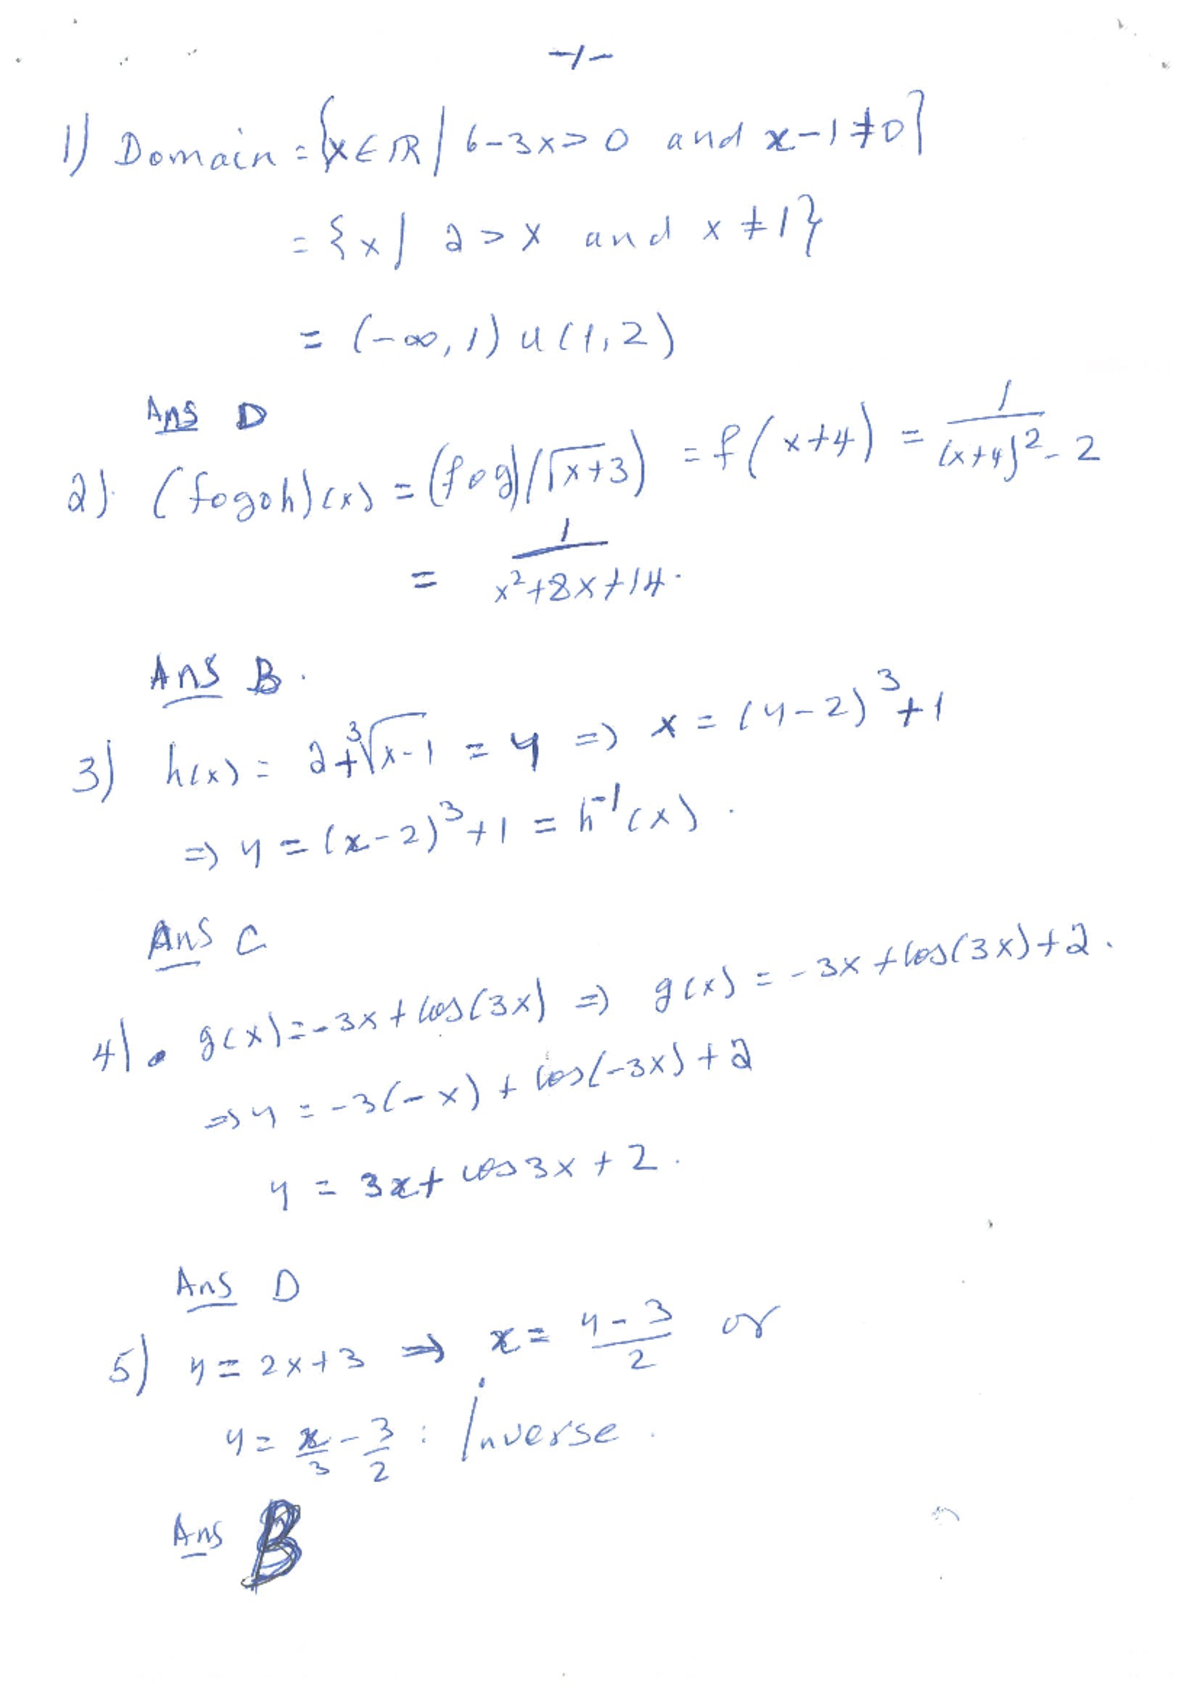 -1-
1) Domain = {x ∈ ℝ / 6-3x > 0 and x-1 ≠ 0}
= {x / 2 > x and x ≠ 1}
= (-∞, 1) ∪ (1, 2)
Ans D
2) (fogoh)(x) = (fog)(√x+3) = f(x+4) = 1/((x+4)²-2)
= 1/(x²+8x+14).
Ans B.
3) h(x) = 2+∛(x-1) = y => x = (y-2)³+1
=> y = (x-2)³+1 = h⁻¹(x).
Ans C
4) • g(x) = -3x + cos(3x) => g(x) = -3x + cos(3x)+2.
=> y = -3(-x) + cos(-3x) + 2
y = 3x + cos 3x + 2.
Ans D
5) y = 2x+3 => x = (y-3)/2 or
y = x/3 - 3/2 : Inverse.
Ans B